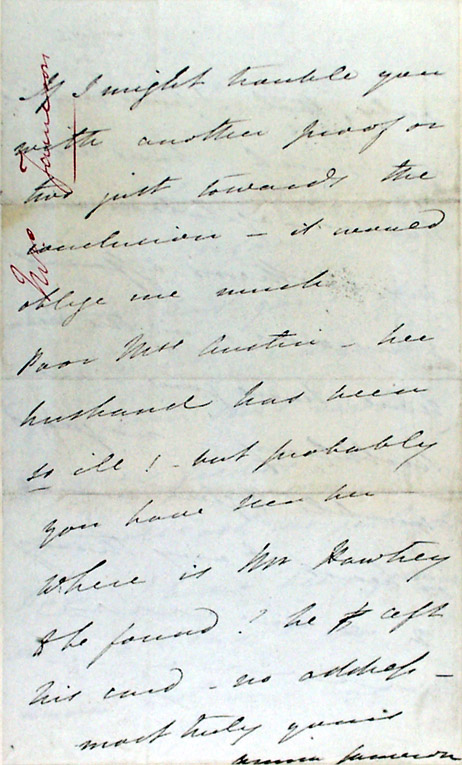 If I might trouble you
with another proof or
two just towards the
conclusion - it would
oblige me much
Poor Mrs Austin - her
husband has been
so ill! - but probably
you have seen her
Where is Mr
to be found? he left
his card - no address -
most truly yours
Anna Jameson
Mrs Jameson